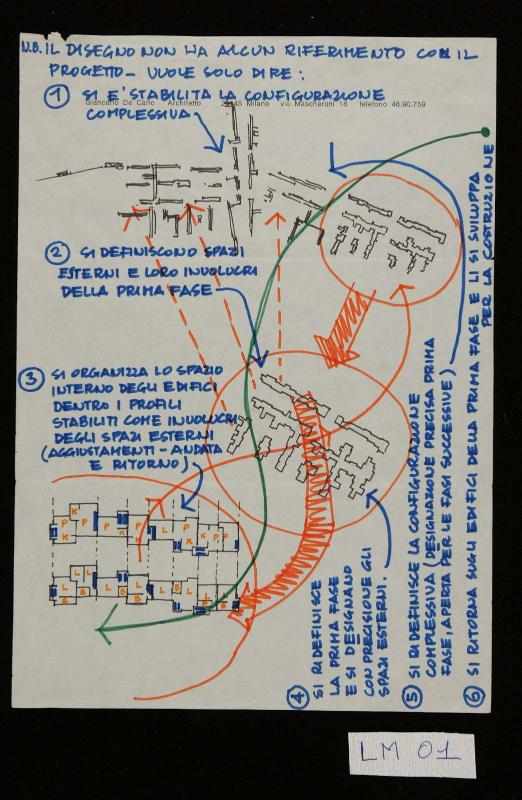 N.B. IL DISEGNO NON HA ALCUN RIFERIMENTO CON IL
PROGETTO - VUOLE SOLO DIRE:
1 SI E' STABILITA LA CONFIGURAZIONE
COMPLESSIVA
Giancarlo De Carlo Architetto 20145 Milano via Mascheroni 18 telefono 46.90.759
2 SI DEFINISCONO SPAZI
ESTERNI E LORO INVOLUCRI
DELLA PRIMA FASE
3 SI ORGANIZZA LO SPAZIO
INTERNO DEGLI EDIFICI
DENTRO I PROFILI
STABILITI COME INVOLUCRI
DEGLI SPAZI ESTERNI
(AGGIUSTAMENTI - ANDATA
E RITORNO)
4 SI RIDEFINISCE
LA PRIMA FASE
E SI DESIGNANO
CON PRECISIONE GLI
SPAZI ESTERNI.
5 SI RIDEFINISCE LA CONFIGURAZIONE
COMPLESSIVA (DESIGNAZIONE PRECISA PRIMA
FASE, APERTA PER LE FASI SUCCESSIVE)
6 SI RITORNA SUGLI EDIFICI DELLA PRIMA FASE E LI SI SVILUPPA
PER LA COSTRUZIONE
LM 01